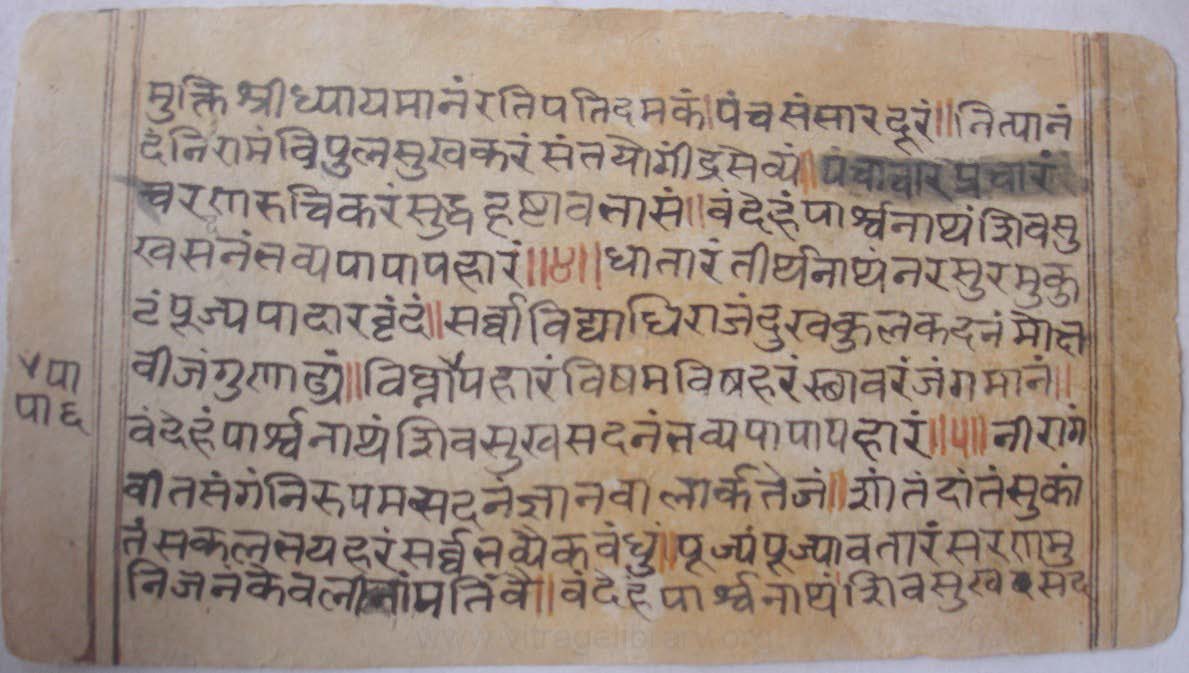 मुक्ति श्रीध्यायमानं रतिपतिदमकं।पंचसंसारदूरं॥नित्यानं
दंनिरामंविपुलसुखकरंसंतयोगींद्रसेव्यं॥पंचाचारप्रचारं
चरणरुचिकरंसुद्ध वंदेहंपार्श्वनाथंशिवसु
खसनंभव्यपापापहारं॥४॥धातारंतीर्थनाथंनरसुरमुकु
टंपूज्यपादारवृंदं॥सर्व्वाविद्याधिराजंदुखकुलकदनं
वीजंगुणाढ्यं॥विघ्नौपहारंविषमविषहरंस्छावरंजंगमानं॥
वंदेहंपार्श्वनाथंशिवसुखसदनंभव्यपापापहारं॥५॥नीरागं
वीतसंगंनिरुपमसदनंज्ञानवालार्कतेजं॥शांतंदांतंसुकां
तंसकलभयहरंसर्व्वभव्यैकवंधुं॥पूज्यंपूज्यावतारंसरणमु
निजनं वंदेहंपार्श्वनाथंशिवसुखसद
पा
पा६
www.vitragalibrary.org